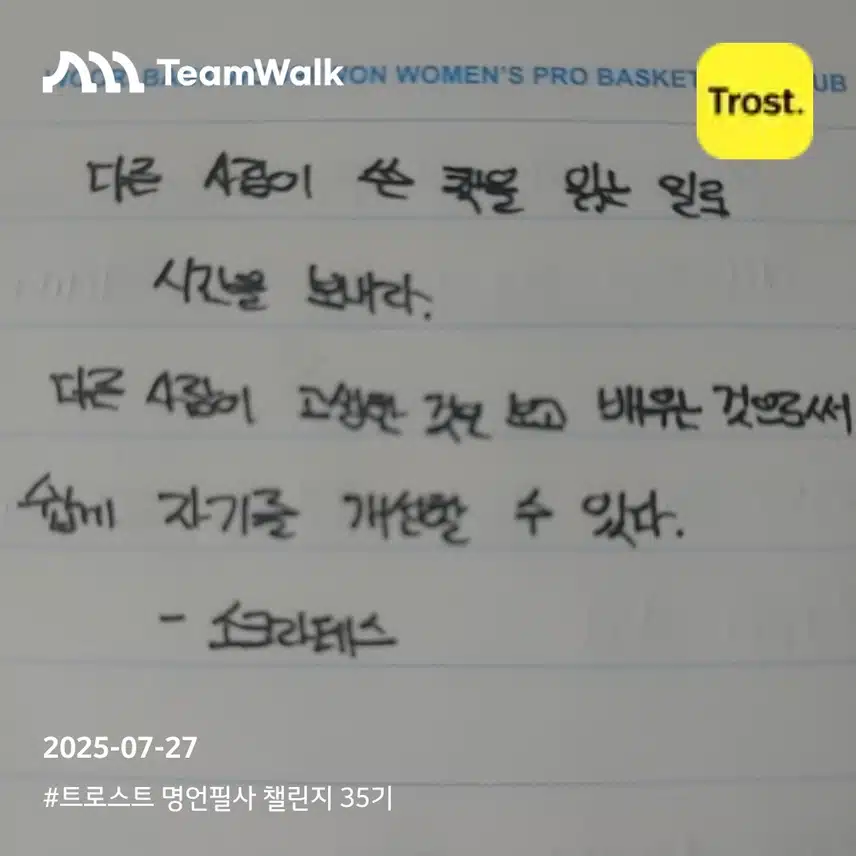 TeamWalk
WON WOMEN'S PRO BASKET UB
Trost.
다른 사람이 쓴 책을 읽는 일로
시간을 보내라.
다른 사람이 고생한 것을 보고 배우는 것으로써
쉽게 자기를 개선할 수 있다.
- 소크라테스
2025-07-27
#트로스트 명언필사 챌린지 35기